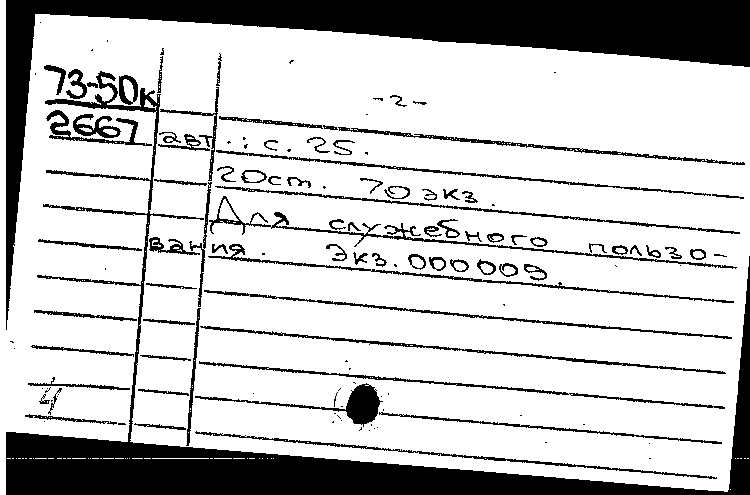 73-50к
2667
-2-
авт.: с. 25.
20 ст. 70 экз.
Для служебного пользо-
вания. Экз. 000009.
4